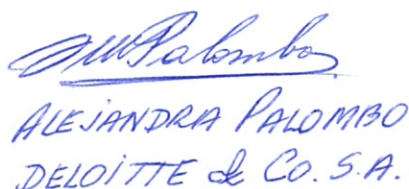 Palombo
ALEJANDRA PALOMBO
DELOITTE & CO. S.A.